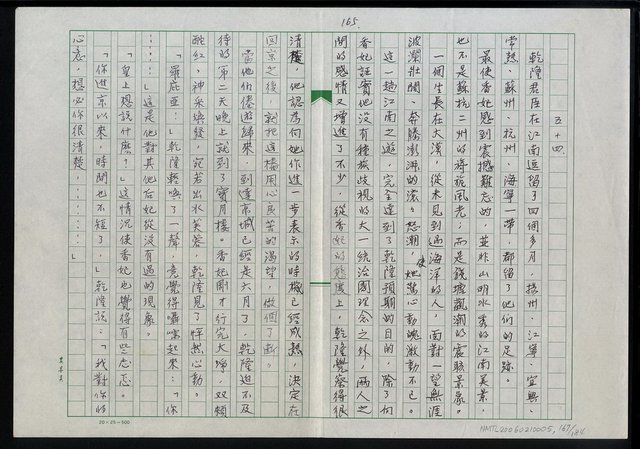 165.
五十四.
乾隆君臣在江南逗留了四個多月，揚州、江寧、宜興、
常熟、蘇州、杭州、海寧一帶，都留了他們的足跡。
最使香妃感到震撼難忘的，並非山明水秀的江南美景，
也不是蘇杭二州的旖旎風光；而是錢塘觀潮的震駭景象。
一個生長在大漠，從未見到過海洋的人，面對一望無涯
波瀾壯闊、奔騰澎湃的滾滾怒潮，使她驚心動魄激動不已。
這一趟江南之遊，完全達到了乾隆預期的目的，除了向
香妃證實他沒有種族歧視的大一統治國理念之外，兩人之
間的感情又增進了不少，從香妃的態度上，乾隆覺察得很
清楚，他認為向她作進一步表示的時機已經成熟，決定在
回京之後，就把這樁用心良苦的渴望，做個了斷。
當他們倦遊歸來，到達京城已經是六月了，乾隆迫不及
待的第二天晚上就到了寶月樓。香妃剛才行完大禱，双頰
酡紅，神采煥發，宛若出水芙蓉，乾隆見了怦然心動。
「羅庇亞：」乾隆輕喚了一聲，竟覺得囁嚅起來：「你
……」這是他對其他后妃從沒有過的現象。
「皇上想說什麼？」這情況使香妃也覺得有些忐忑。
「你進京以來，時間也不短了，」乾隆說：「我對你的
心意，想必你很清楚………」
20×25=500
NMTL20060210005, 167/184